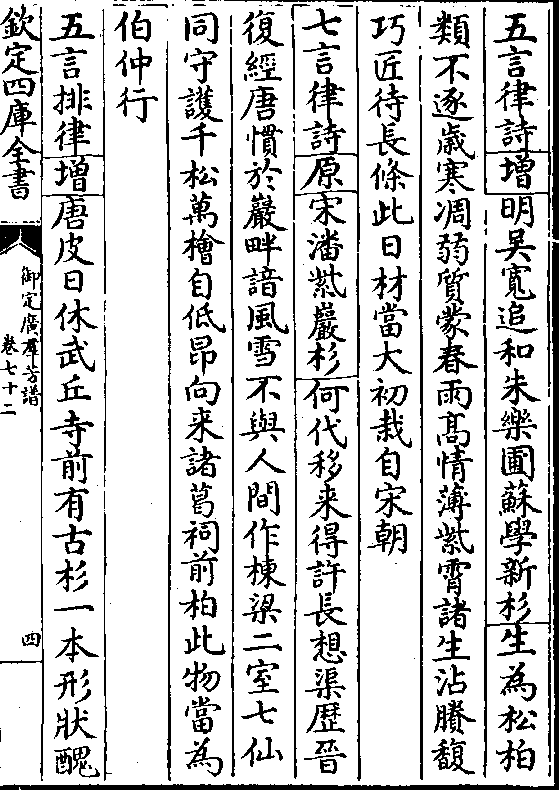 五言律詩增明吳寬追和朱樂圃蘇學新杉生為松柏
類不逐歲寒凋弱質蒙春雨高情薄紫霄諸生沾賸馥
巧匠待長條此日材當大初栽自宋朝
七言律詩原宋潘紫巖杉何代移来得許長想渠歴晉
復經唐慣於巖畔諳風雪不與人間作棟梁二室七仙
同守護千松萬檜自低昂向来諸葛祠前柏此物當為
伯仲行
五言排律增唐皮日休武丘寺前有古杉一本形狀醜
欽定四庫全書
御定廣羣芳譜
卷七十二
四